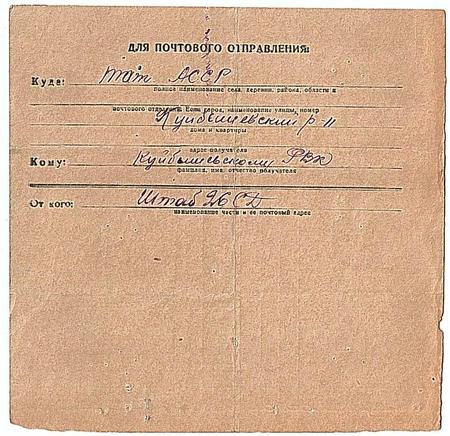 ДЛЯ ПОЧТОВОГО ОТПРАВЛЕНИЯ:
Куда: Тат АССР
полное наименование села, деревни, района, области и
почтового отделения. Если город, наименование улицы, номер
Куйбышевский р-н
дома и квартиры
адрес получателя
Кому: Куйбышевскому РВК
фамилия, имя, отчество получателя
От кого: Штаб 26 СД
наименование части и ее почтовый адрес